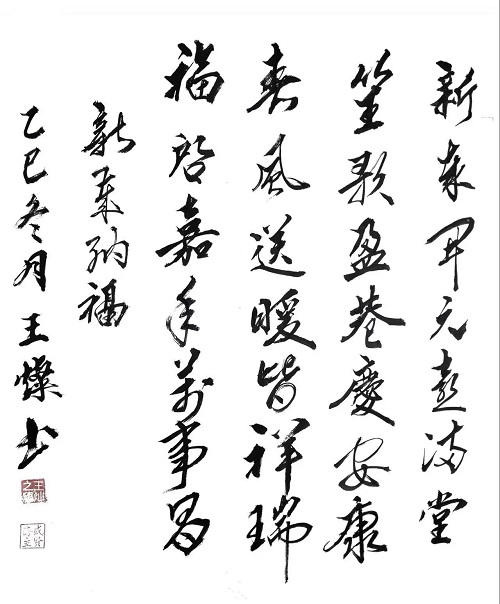 新春开元喜满堂
笙歌盈巷慶安康
春風送暖皆祥瑞
福启嘉年萬事昌
新春纳福
乙巳冬月王燦书